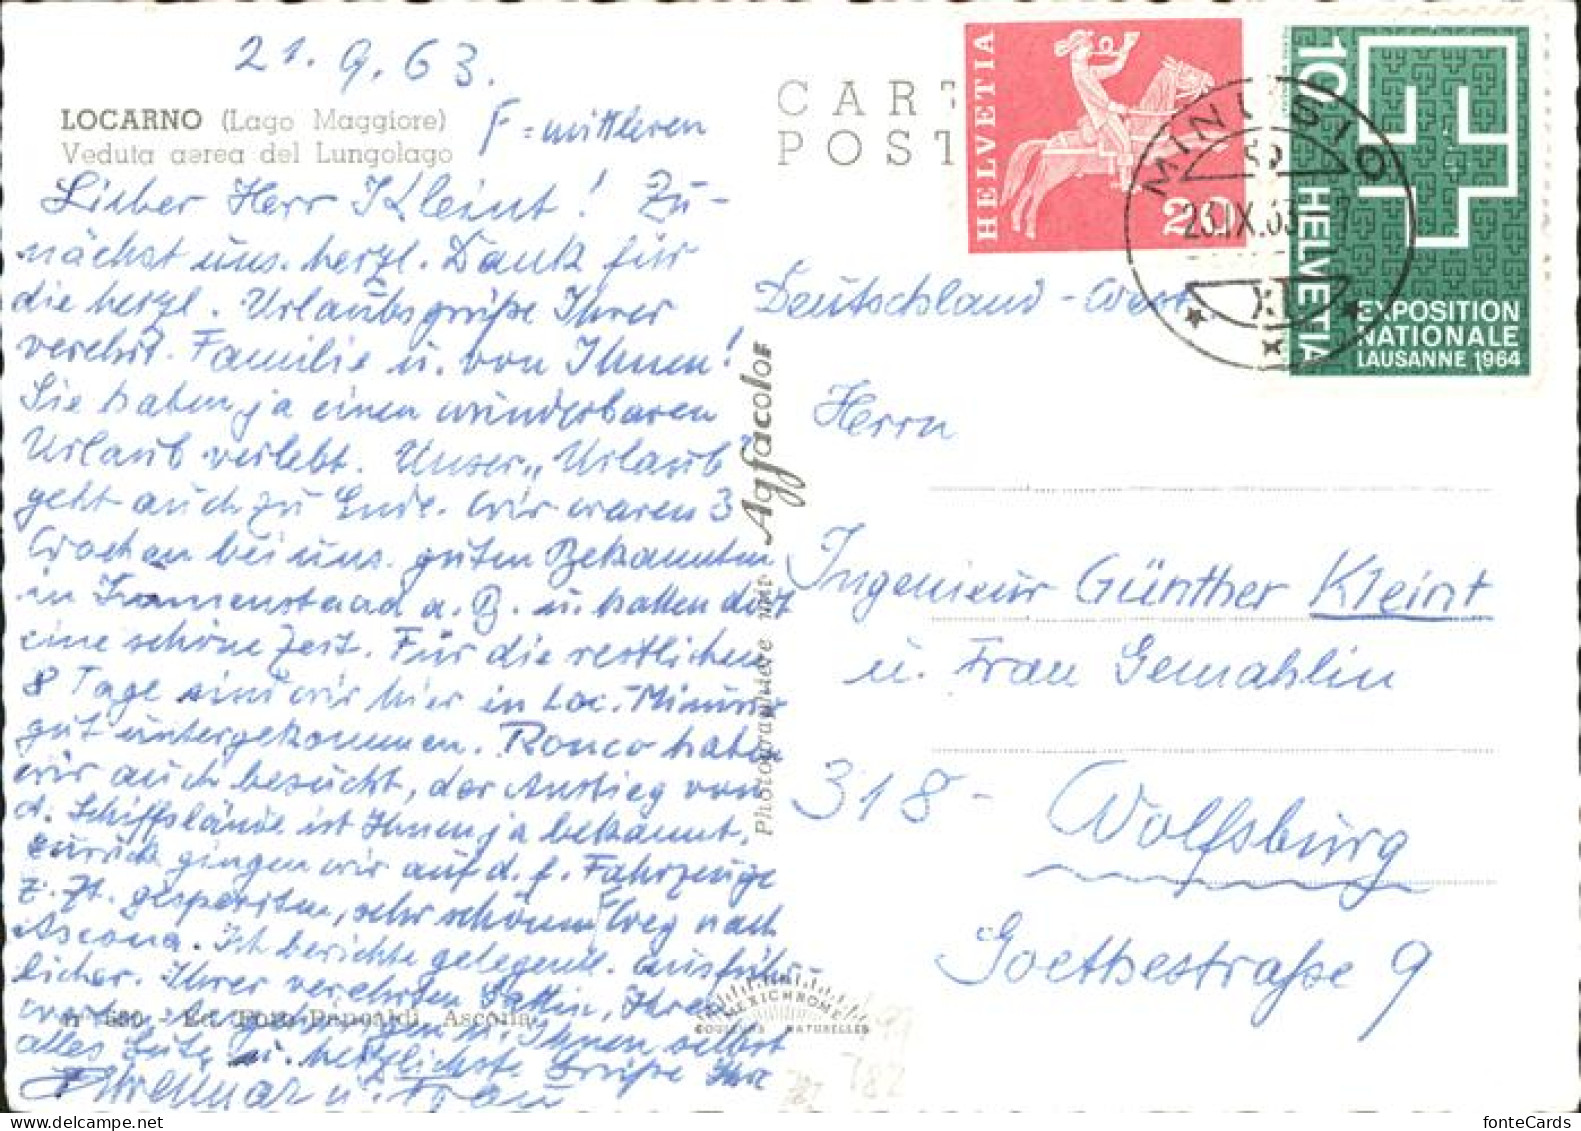 21. 9. 63.
LOCARNO (Lago Maggiore)
Veduta aerea del Lungolago
F = mittleren
Lieber Herr Kleint! Zu-
nächst uns. herzl. Dank für
die herzl. Urlaubsgrüße Ihrer
verehrt. Familie u. von Ihnen!
Sie haben ja einen wunderbaren
Urlaub verlebt. Unser „Urlaub"
geht auch zu Ende. Wir waren 3
Wochen bei uns. guten Bekannten
in Immenstaad a. B. u. hatten dort
eine schöne Zeit. Für die restlichen
8 Tage sind wir hier in Loc.-Minusio
gut untergekommen. Ronco haben
wir auch besucht, der Anstieg von
d. Schiffslände ist Ihnen ja bekannt,
zurück gingen wir auf d. f. Fahrzeuge
z. Zt. gesperrten, sehr schönen F Weg nach
Ascona. Ich berichte gelegentl. ausführ-
licher. Ihrer verehrten Gattin, Ihren
u. Ihnen selbst
alles Gute u. herzlichste Grüße Ihr
u. Frau
nº 530 - Ed. Foto Pancaldi, Ascona
CART
POST
HELVETIA
20
10
HELVETIA
EXPOSITION
NATIONALE
LAUSANNE 1964
MINUSIO
23.IX.63
XI
Photographiere mit Agfacolor
MEXICHROME
COULEURS NATURELLES
Deutschland-West
Herrn
Ingenieur Günther Kleint
u. Frau Gemahlin
318- Wolfsburg
Goethestraße 9
782
fonteCards